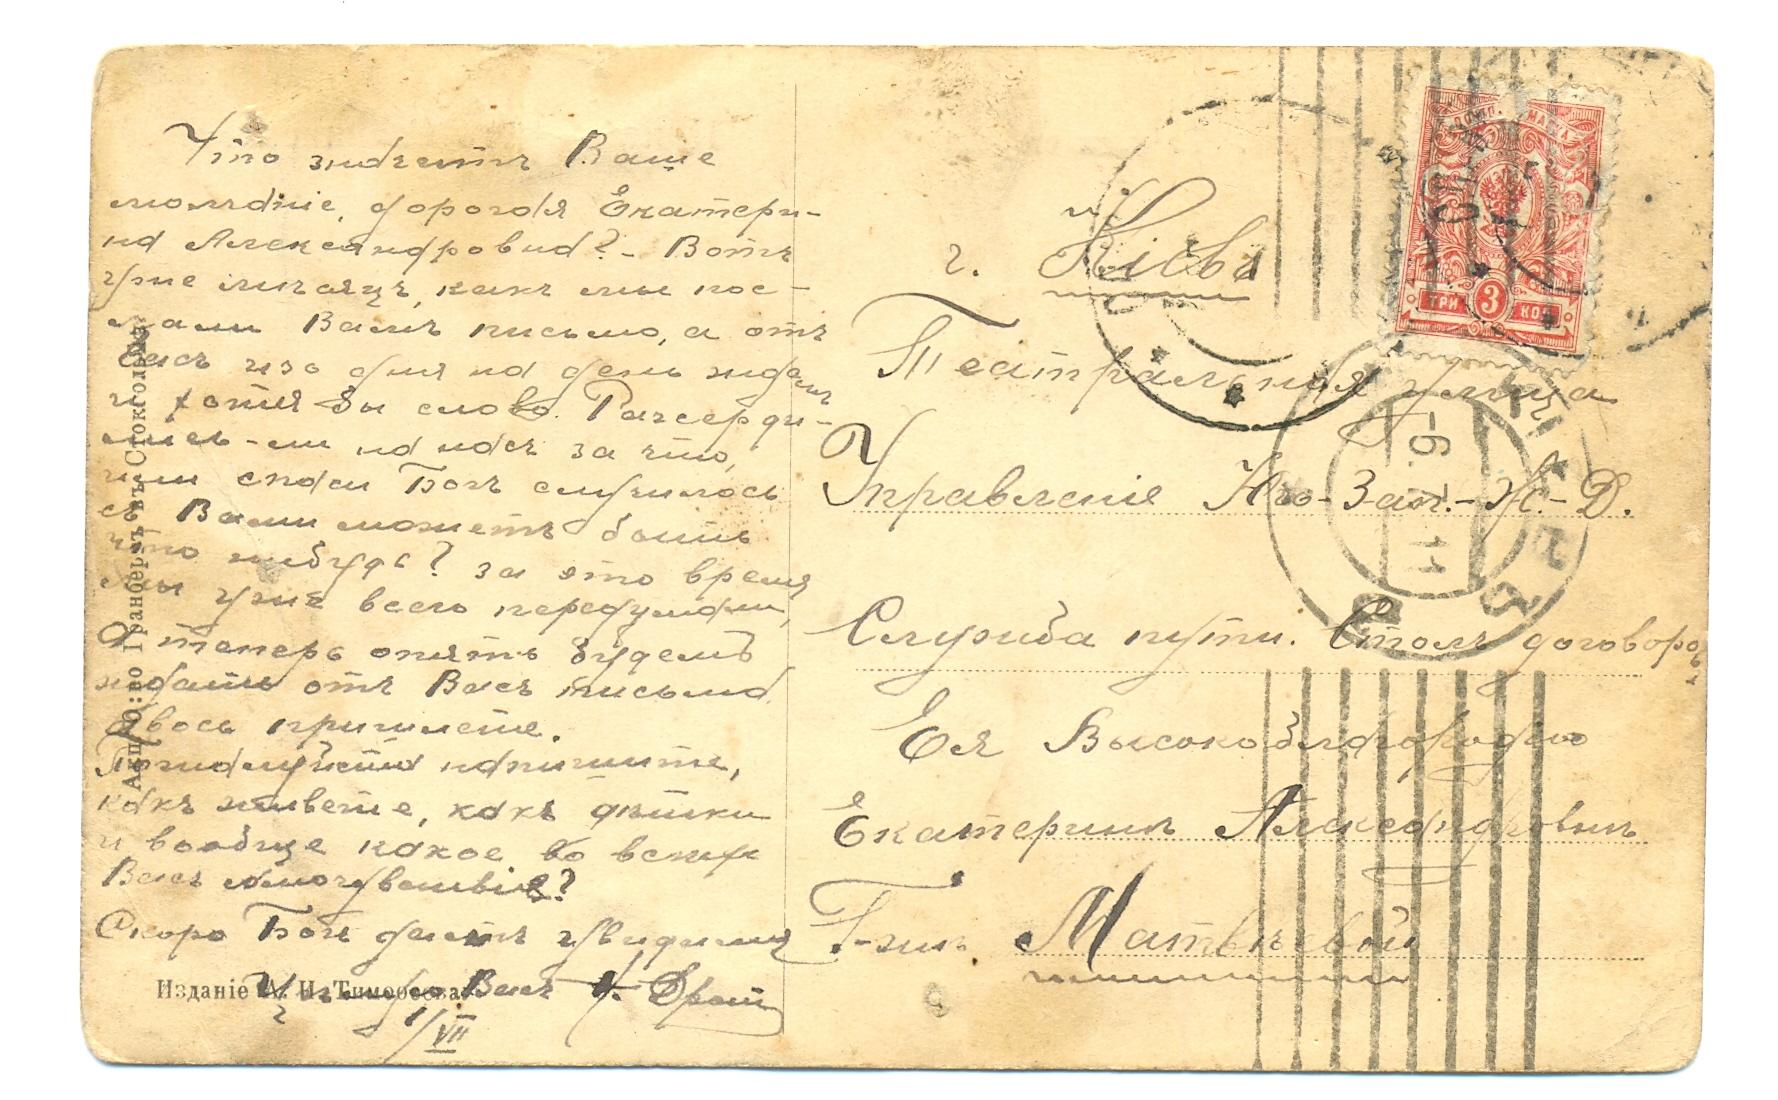 Что значитъ Ваше
молчаніе, дорогая Екатери-
на Александровна? - Вотъ
уже мѣсяцъ, какъ мы пос-
лали Вамъ письмо, а отъ
Васъ изо дня на день ждемъ
и хотя бы слово. Разсерди-
лись-ли на насъ за что,
или спаси Богъ случилось
съ Вами можетъ быть
что нибудь? За это время
мы уже всего передумали,
А теперь опять будемъ
ждать отъ Васъ письма
авось пришлете.
Пожалуйста напишите,
какъ живете, какъ дѣтки
и вообще какое во всѣхъ
Васъ самочувствіе?
Скоро Богъ дастъ увидимся
Цѣлую Васъ
1/VII
Изданіе А. И. Тимофеева
Акц. О:во Гранбергъ въ Стокгольмѣ
г. Кіевъ
Театральная улица
Управленіе Юго-Зап.-Ж.-Д.
Служба пути. Столъ договоровъ
Ея Высокоблагородію
Екатеринѣ Александровнѣ
Г-жѣ Матвѣевой
МАРКА
ТРИ 3 КОП
КІЕВЪ
-6. 7. 11